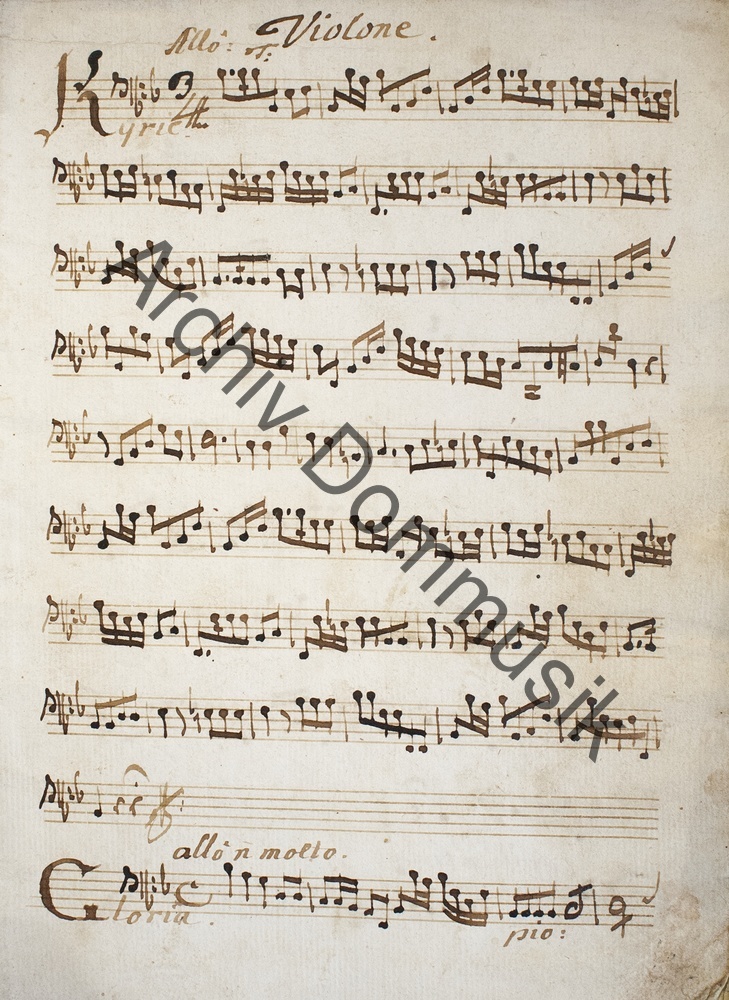 Violone.
Allo:
Kyrie
3
4
Archiv Dommusik
allo n molto.
C
Gloria.
pio: